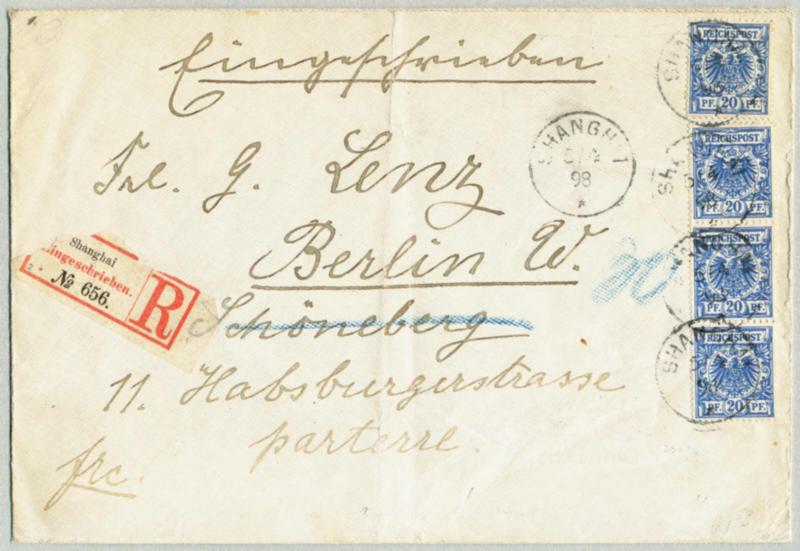 Eingeschrieben
Frl. G. Lenz
Berlin W.
Schöneberg
11. Habsburgerstrasse
parterre.
frc.
Shanghai
Eingeschrieben.
№ 656.
R
SHANGHAI
5/4
98
*
30
REICHSPOST
PF 20 PF
REICHSPOST
PF 20 PF
REICHSPOST
PF 20 PF
REICHSPOST
PF 20 PF